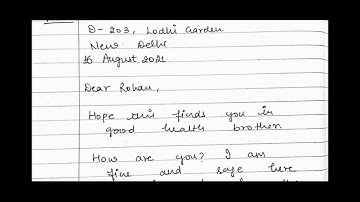 D-203, Lodhi Garden
New Delhi
16 August 2021
Dear Rohan,
Hope this finds you in
good health brother.
How are you? I am
fine and safe here